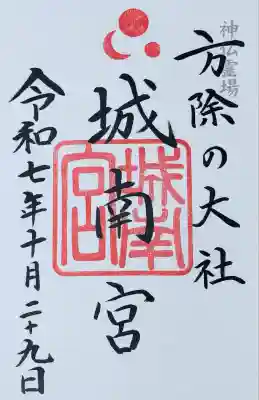 神仏霊場
方除の大社
城南宮
城南宮
令和七年十月二十九日